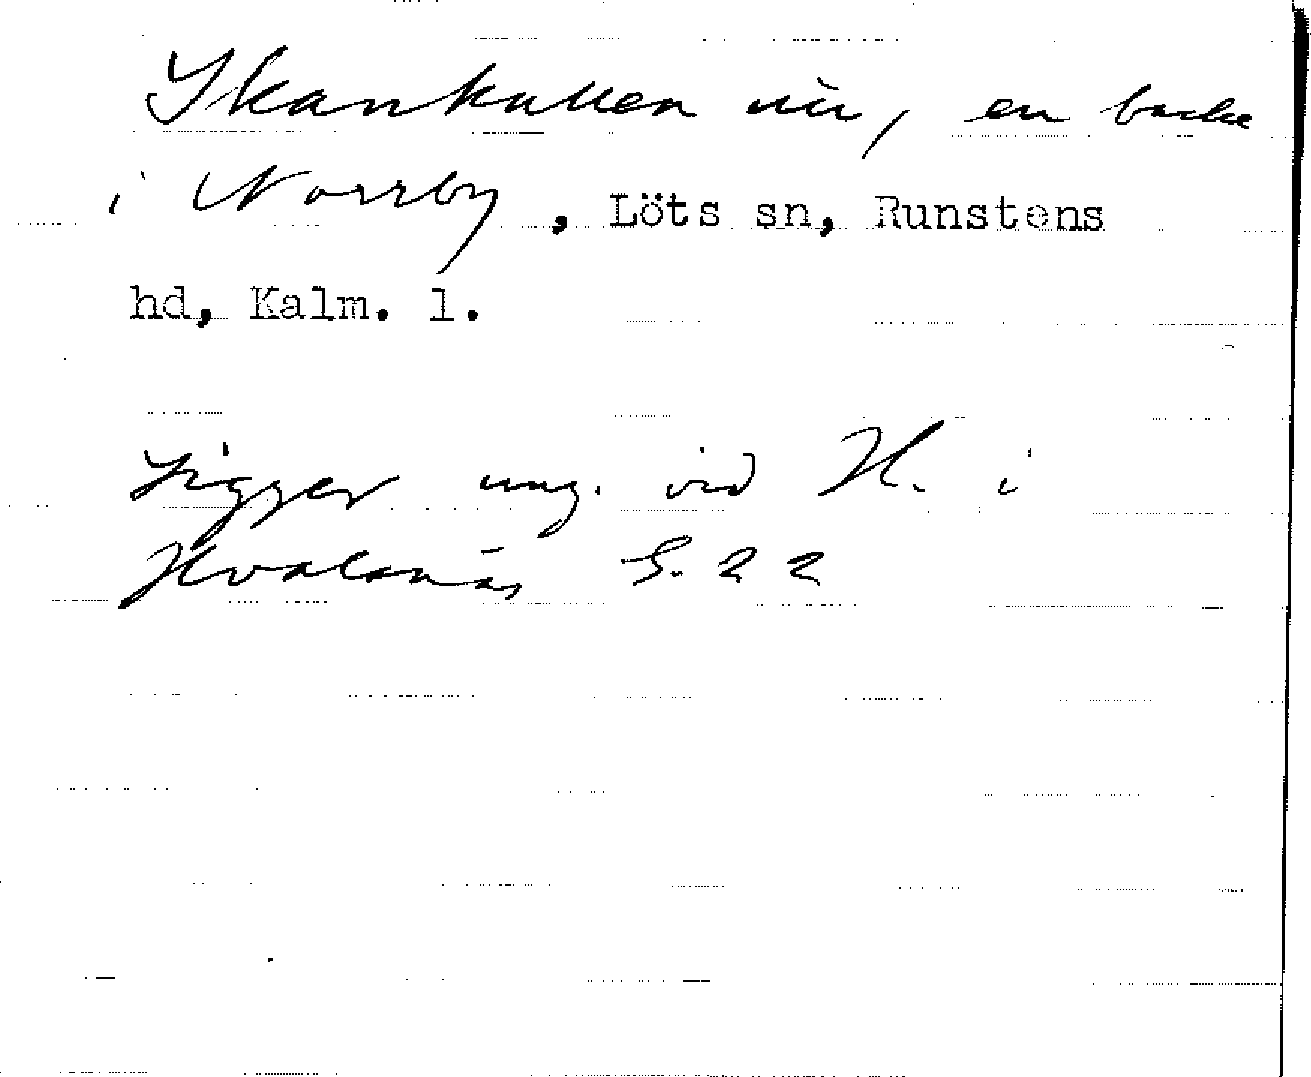 Skankullen ùù, en backe
i Norrby, Löts sn, Runstens
hd, Kalm. l.
Ligger ung. vid H. i
Hvalsnäs S. 22